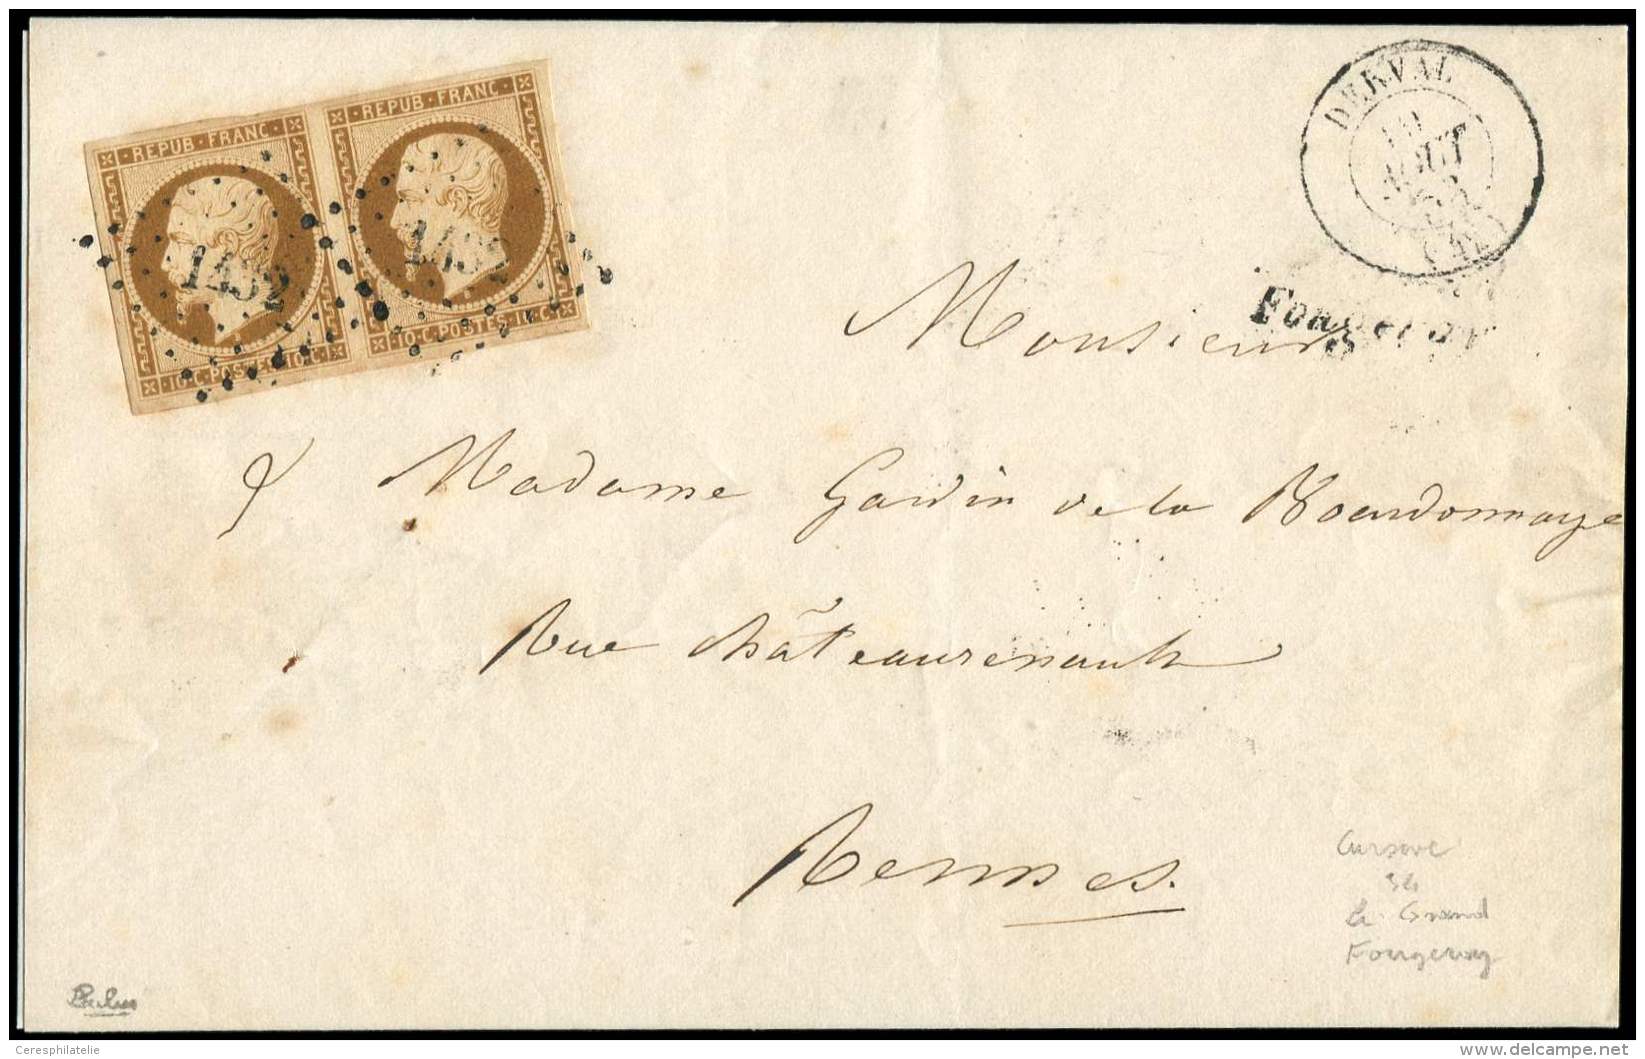 REPUB · FRANC ·
REPUB · FRANC ·
1432
1432
10 · C · POSTES · 10 · C ·
10 · C · POSTES · 10 · C ·
DERVAL
AOUT
(42)
Fougeray
Monsieur
& Madame Gardin de la Bourdonnaye
Rue châteaurenault
Rennes.
Cursive
34
Le Grand
Fougeray
Ceresphilatelie
© delcampe.net